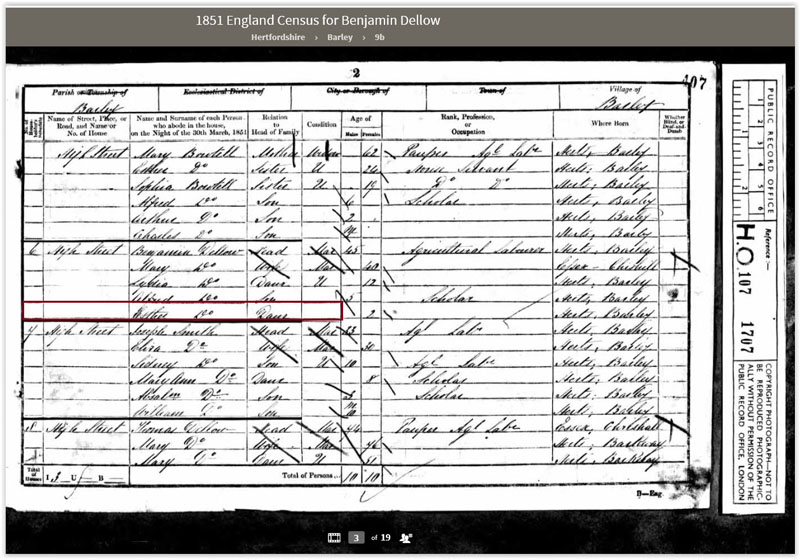 1851 England Census for Benjamin Dellow
Hertfordshire › Barley › 9b
2
107
Parish or Township of Ecclesiastical District of City or Borough of Town of Village of
Barley Barley
Name of Street, Place, or Road, and Name or No. of House
Name and Surname of each Person who abode in the house, on the Night of the 30th March, 1851
Relation to Head of Family
Condition
Age of
Males Females
Rank, Profession, or Occupation
Where Born
Whether Blind, or Deaf-and-Dumb
High Street Mary Bowtell Mother Widow 62 Pauper Agl Labr Herts, Barley
Do Sister U Servant Herts, Barley
Sophia Bowtell Sister U 19 Do Do Herts, Barley
Alfred Do Son 6 Scholar Herts, Barley
Arthur Do Son 2 Herts, Barley
Charles Do Son Herts, Barley
6 High Street Benjamin Dellow Head Mar 45 Agricultural Labourer Herts, Barley
Mary Do Wife Mar 40 Essex
Lydia Do Daur U 12 Herts, Barley
Alfred Do Son 5 Scholar Herts, Barley
Do Daur 2 Herts, Barley
7 High Street Joseph Smith Head Mar 33 Agl Labr Herts, Barley
Eliza Do Wife Mar 30 Herts, Barley
Sidney Do Son U 10 Agl Labr Herts, Barley
Mary Ann Do Daur 8 Scholar Herts, Barley
Do Son Scholar Herts, Barley
William Do Son Herts, Barley
8 High Street Thomas Dellow Head Mar 44 Pauper Agl Labr Essex, Chrishall
Mary Do Wife Mar 46 Herts, Barkway
Mary Do Daur U 21 Herts, Barkway
Total of Houses I 3 U — B — Total of Persons 10 10
B—Eng.
PUBLIC RECORD OFFICE
1 2 3 4 5 6
Reference :—
H.O. 107 1707
COPYRIGHT PHOTOGRAPH—NOT TO BE REPRODUCED PHOTOGRAPHICALLY WITHOUT PERMISSION OF THE PUBLIC RECORD OFFICE, LONDON
3 of 19